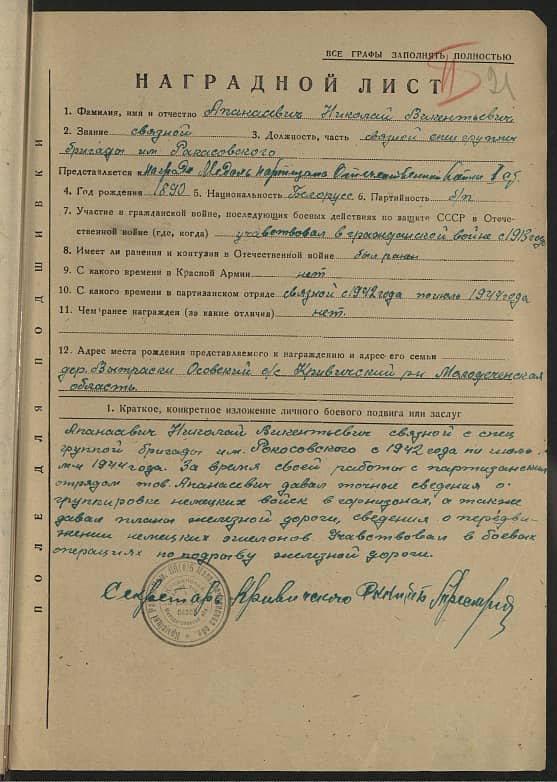 ВСЕ ГРАФЫ ЗАПОЛНЯТЬ ПОЛНОСТЬЮ
21
НАГРАДНОЙ ЛИСТ
1. Фамилия, имя и отчество Апанасевич Николай Викентьевич
2. Звание связной 3. Должность, часть связной спец группы
бригады им Ракасовского
Представляется к награде Медаль партизана Отечественной войны II ст.
4. Год рождения 1890 5. Национальность Белорусс 6. Партийность б/п
7. Участие в гражданской войне, последующих боевых действиях по защите СССР в Отече-
ственной войне (где, когда) учавствовал в гражданской войне с 1918 года
8. Имеет ли ранения и контузии в Отечественной войне был ранен
9. С какого времени в Красной Армии нет
10. С какого времени в партизанском отряде связной с 1942 года по июль 1944 года
11. Чем ранее награжден (за какие отличия) нет.
12. Адрес места рождения представляемого к награждению и адрес его семьи
дер. Осовский с/с Кривичский р-н Молодеченская
область.
1. Краткое, конкретное изложение личного боевого подвига или заслуг
Апанасевич Николай Викентьевич связной с спец
группой бригады им. Рокосовского с 1942 года по июль
м-ц 1944 года. За время своей работы с партизанским
отрядам тов. Апанасевич давал точные сведения о
группировке немецких войск в гарнизонах, а также
давал планы железной дороги, сведения о передви-
жении немецких эшелонов Учавствовал в боевых
операциях по подрыву железной дороги.
Секретарь Кривичского
ПОЛЕ ДЛЯ ПОДШИВКИ